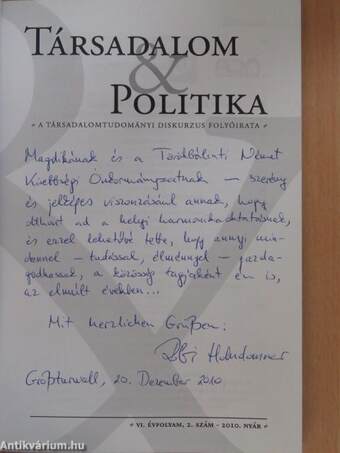 TÁRSADALOM
&
POLITIKA
A TÁRSADALOMTUDOMÁNYI DISKURZUS FOLYÓIRATA
Magdikának és a Törökbálinti Német
Kisebbségi Önkormányzatnak – szerény
és jelképes viszonzásául annak, hogy
otthont ad a helyi harmonikaoktatásnak,
és ezzel lehetővé tette, hogy annyi min-
dennel – tudással, élménnyel – gazda-
godhassak, a közösség tagjaként én is,
az elmúlt években...
Mit herzlichen Grüßen:
Großturwall, 20. Dezember 2010
VI. ÉVFOLYAM, 2. SZÁM - 2010. NYÁR
Antikvárium.hu